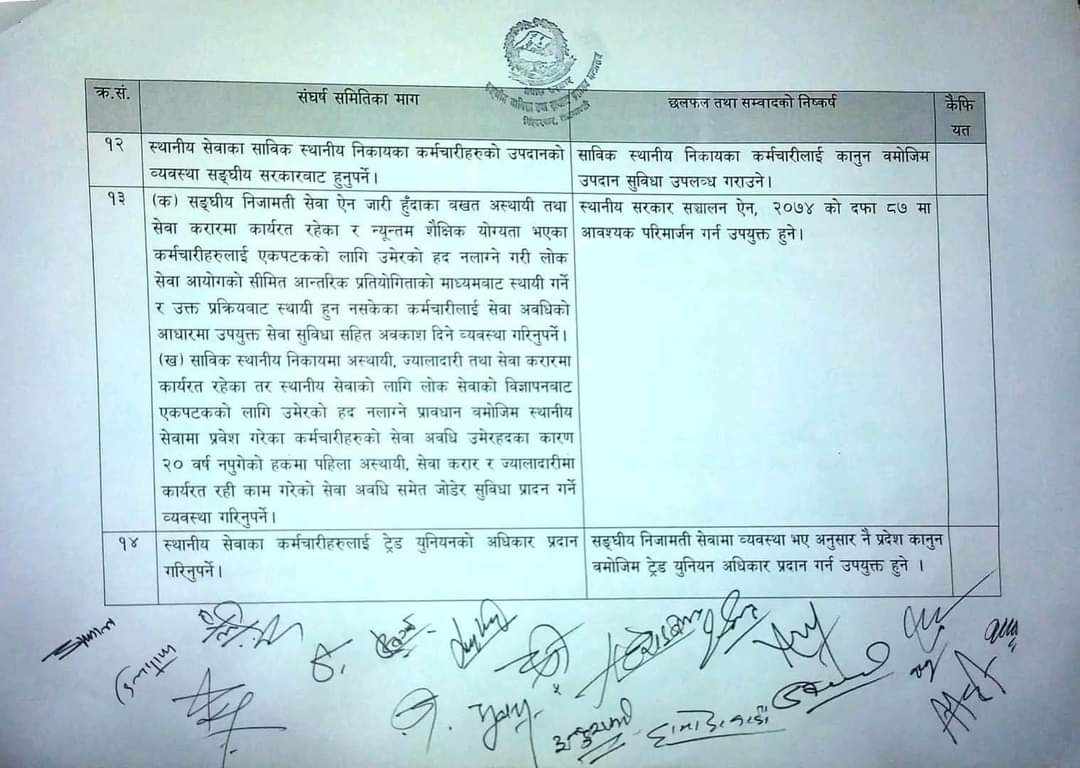 क्र.सं.
संघर्ष समितिका माग
छलफल तथा सम्वादको निष्कर्ष
कैफि
यत
१२
स्थानीय सेवाका साविक स्थानीय निकायका कर्मचारीहरुको उपदानको
व्यवस्था सङ्घीय सरकारवाट हुनुपर्ने।
साविक स्थानीय निकायका कर्मचारीलाई कानुन वमोजिम
उपदान सुविधा उपलब्ध गराउने।
१३
(क) सङ्घीय निजामती सेवा ऐन जारी हुँदाका वखत अस्थायी तथा
सेवा करारमा कार्यरत रहेका र न्यून्तम शैक्षिक योग्यता भएका
कर्मचारीहरुलाई एकपटकको लागि उमेरको हद नलाग्ने गरी लोक
सेवा आयोगको सीमित आन्तरिक प्रतियोगिताको माध्यमवाट स्थायी गर्ने
र उक्त प्रक्रियवाट स्थायी हुन नसकेका कर्मचारीलाई सेवा अवधिको
आधारमा उपयुक्त सेवा सुविधा सहित अवकाश दिने व्यवस्था गरिनुपर्ने।
(ख) साविक स्थानीय निकायमा अस्थायी, ज्यालादारी तथा सेवा करारमा
कार्यरत रहेका तर स्थानीय सेवाको लागि लोक सेवाको विज्ञापनवाट
एकपटकको लागि उमेरको हद नलाग्ने प्रावधान वमोजिम स्थानीय
सेवामा प्रवेश गरेका कर्मचारीहरुको सेवा अवधि उमेरहदका कारण
२० वर्ष नपुगेको हकमा पहिला अस्थायी, सेवा करार र ज्यालादारीमा
कार्यरत रही काम गरेको सेवा अवधि समेत जोडेर सुविधा प्रादन गर्ने
व्यवस्था गरिनुपर्ने।
स्थानीय सरकार सञ्चालन ऐन, २०७४ को दफा ८७ मा
आवश्यक परिमार्जन गर्न उपयुक्त हुने।
१४
स्थानीय सेवाका कर्मचारीहरुलाई ट्रेड युनियनको अधिकार प्रदान
गरिनुपर्ने।
सङ्घीय निजामती सेवामा व्यवस्था भए अनुसार नै प्रदेश कानुन
वमोजिम ट्रेड युनियन अधिकार प्रदान गर्न उपयुक्त हुने ।